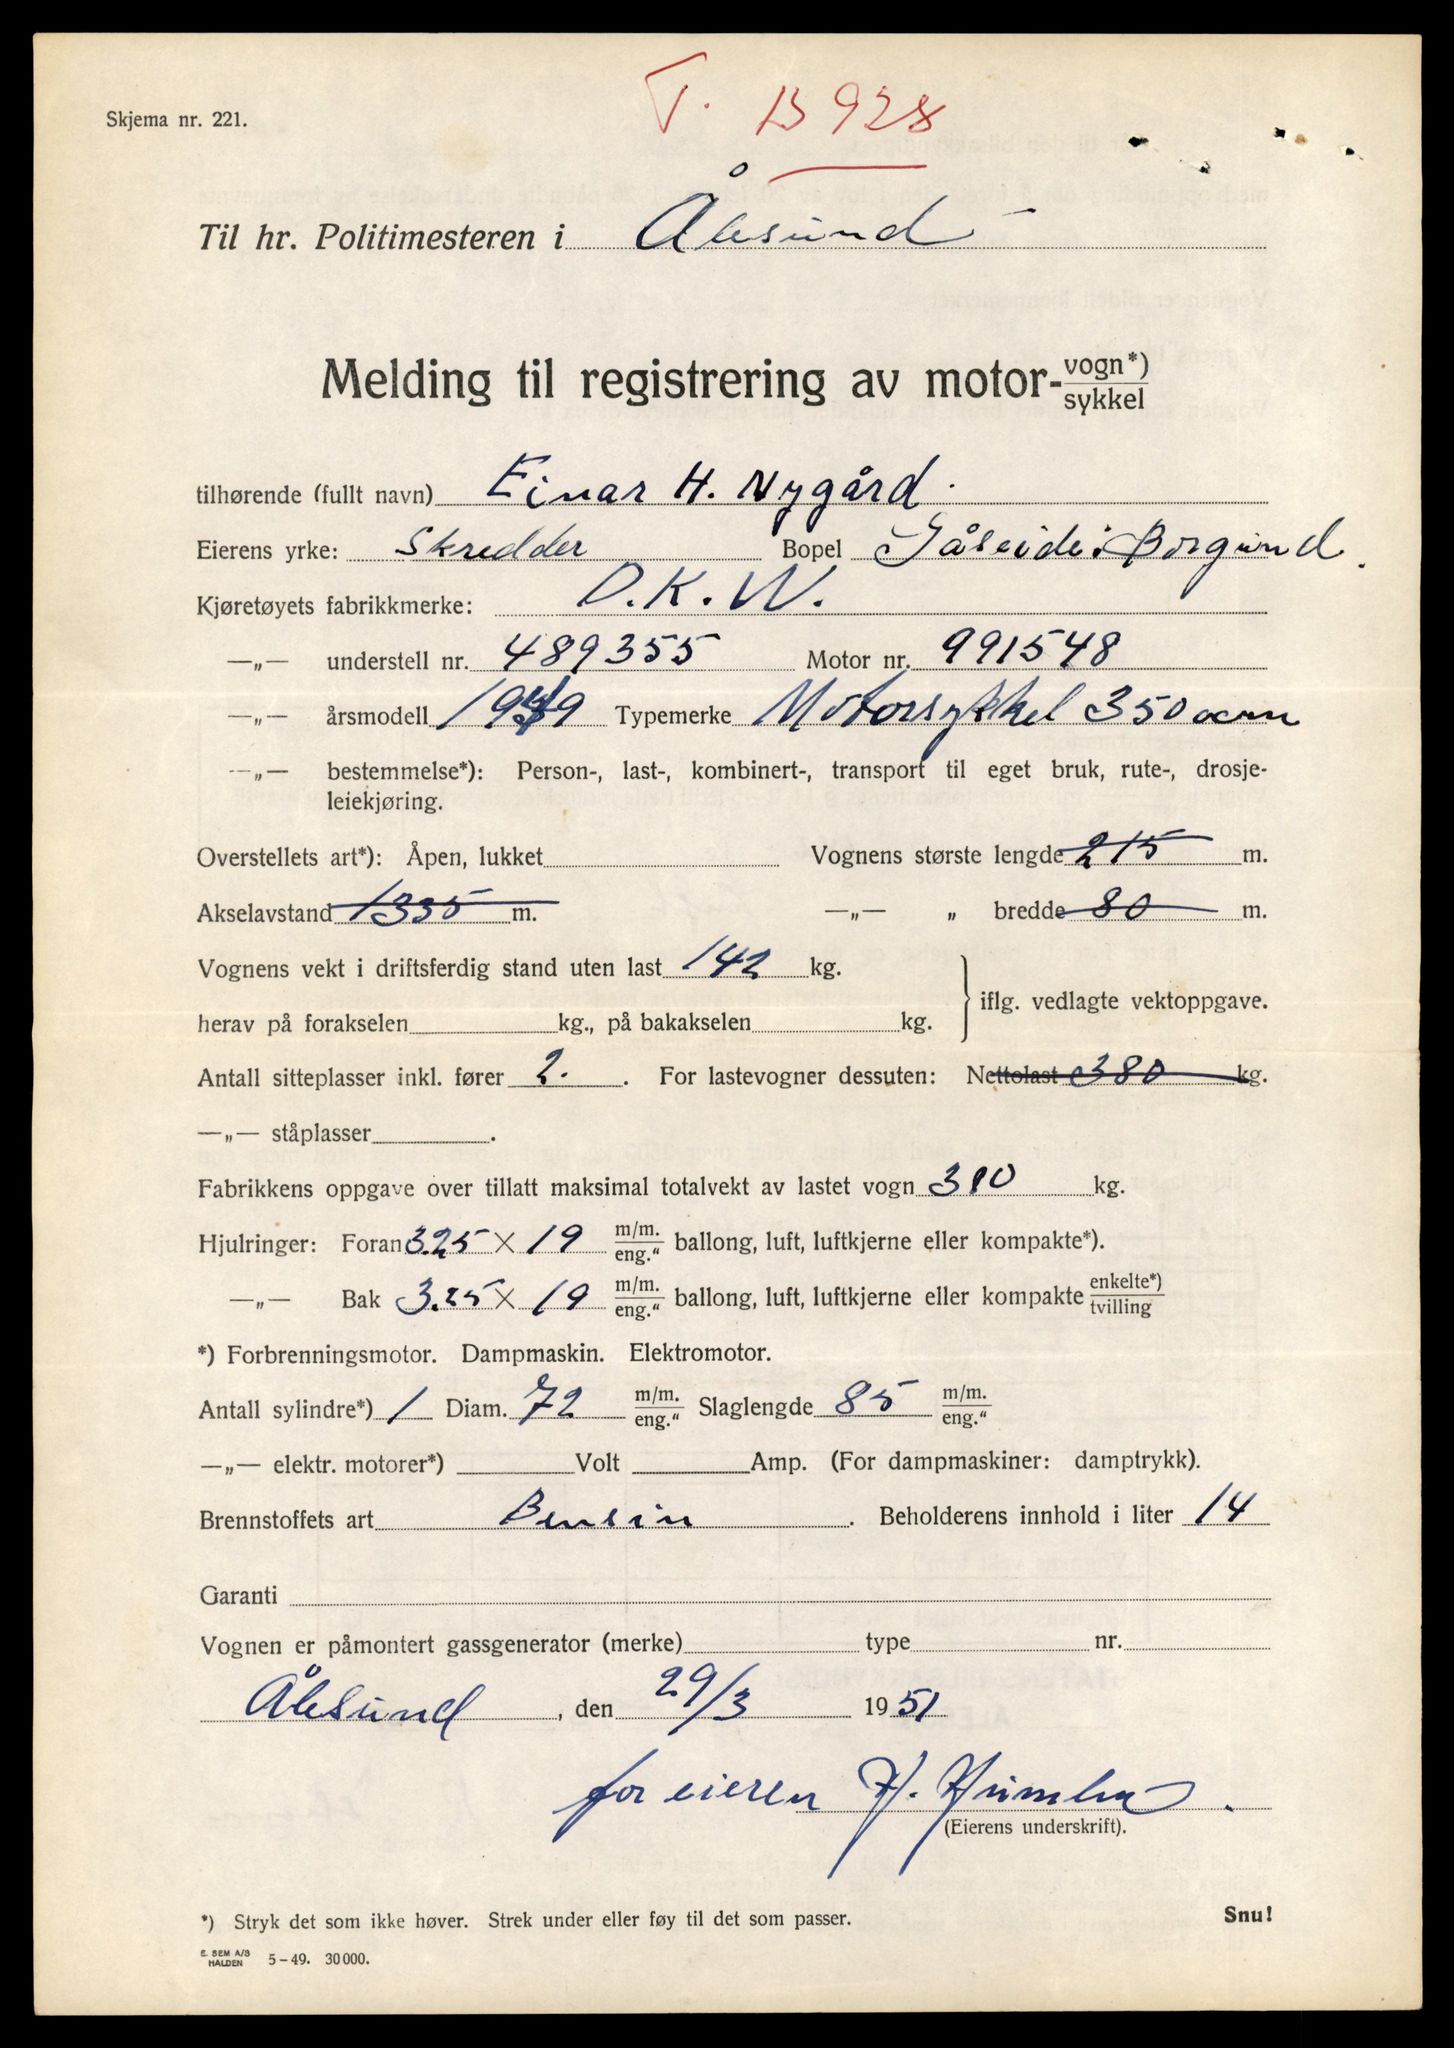 T. B 928
Skjema nr. 221.
Til hr. Politimesteren i Ålesund
Melding til registrering av motor- vogn*) sykkel
tilhørende (fullt navn) Einar H. Nygård.
Eierens yrke: Skredder Bopel Gåseide i Borgund.
Kjøretøyets fabrikkmerke: D.K.W.
—„— understell nr. 489355 Motor nr. 991548
—„— årsmodell 1939 Typemerke Motorsykkel 350 ccm
—„— bestemmelse*): Person-, last-, kombinert-, transport til eget bruk, rute-, drosje-
leiekjøring.
Overstellets art*): Åpen, lukket Vognens største lengde 215 m.
Akselavstand 1335 m. —„— „ bredde 80 m.
Vognens vekt i driftsferdig stand uten last 142 kg.
iflg. vedlagte vektoppgave.
herav på forakselen kg., på bakakselen kg.
Antall sitteplasser inkl. fører 2. . For lastevogner dessuten: Nettolast 380 kg.
—„— ståplasser .
Fabrikkens oppgave over tillatt maksimal totalvekt av lastet vogn 380 kg.
Hjulringer: Foran 3.25 × 19 m/m. eng.“ ballong, luft, luftkjerne eller kompakte*).
—„— Bak 3.25 × 19 m/m. eng.“ ballong, luft, luftkjerne eller kompakte enkelte*) tvilling
*) Forbrenningsmotor. Dampmaskin. Elektromotor.
Antall sylindre*) 1 Diam. 72 m/m. eng.“ Slaglengde 85 m/m. eng.“
—„— elektr. motorer*) Volt Amp. (For dampmaskiner: damptrykk).
Brennstoffets art Bensin . Beholderens innhold i liter 14
Garanti
Vognen er påmontert gassgenerator (merke) type nr.
Ålesund , den 29/3 1951
for eieren H.
(Eierens underskrift).
*) Stryk det som ikke høver. Strek under eller føy til det som passer. Snu!
E. SEM A/S HALDEN 5–49. 30 000.